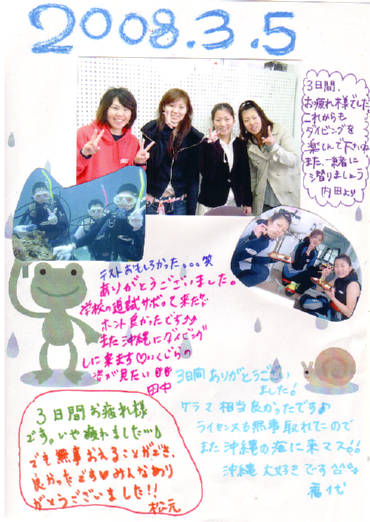 2008.3.5
3日間、
お疲れ様でした
これからも
ダイビングを
楽しんで下さい
また、ご一緒に
潜りましょう
内田より
テストおもしろかった。。。笑
ありがとうございました。
学校の追試サボって来た!!
ホント良かったです♪
また沖縄にダイビング
しに来ます♡いくじらの
姿が見たい
田中
3日間ありがとうござい
ました!
ケラマ相当良かったです♪
ライセンスも無事取れたので
また沖縄の海に来マス!!
沖縄大好きです
3日間お疲れ様
です。いや疲れました…
でも無事おえることができ、
良かったです♡みんなあり
がとうございました!!
松元